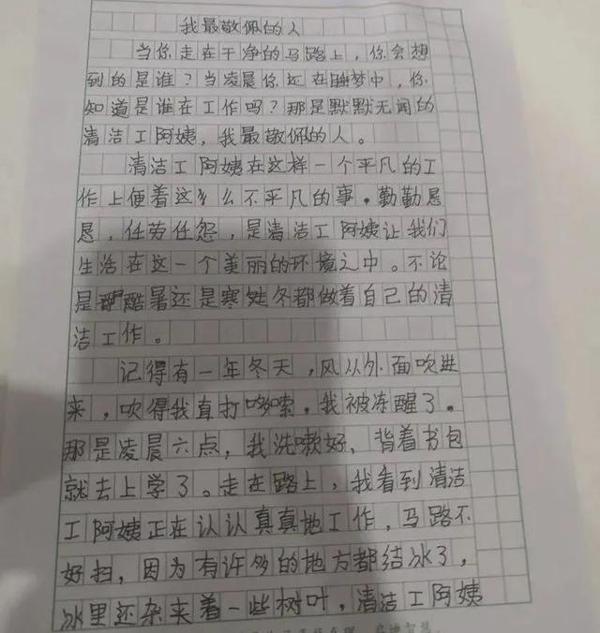 我最敬佩的人
当你走在干净的马路上，你会想
到的是谁？当凌晨你还在睡梦中，你
知道是谁在工作吗？那是默默无闻的
清洁工阿姨，我最敬佩的人。
清洁工阿姨在这样一个平凡的工
作上便着这么不平凡的事。勤勤恳
恳，任劳任怨，是清洁工阿姨让我们
生活在这一个美丽的环境之中。不论
是酷暑还是寒冬都做着自己的清
洁工作。
记得有一年冬天，风从外面吹进
来，吹得我直打哆嗦，我被冻醒了。
那是凌晨六点，我洗嗽好，背着书包
就去上学了。走在路上，我看到清洁
工阿姨正在认认真真地工作，马路不
好扫，因为有许多的地方都结冰了，
冰里还杂夹着一些树叶，清洁工阿姨